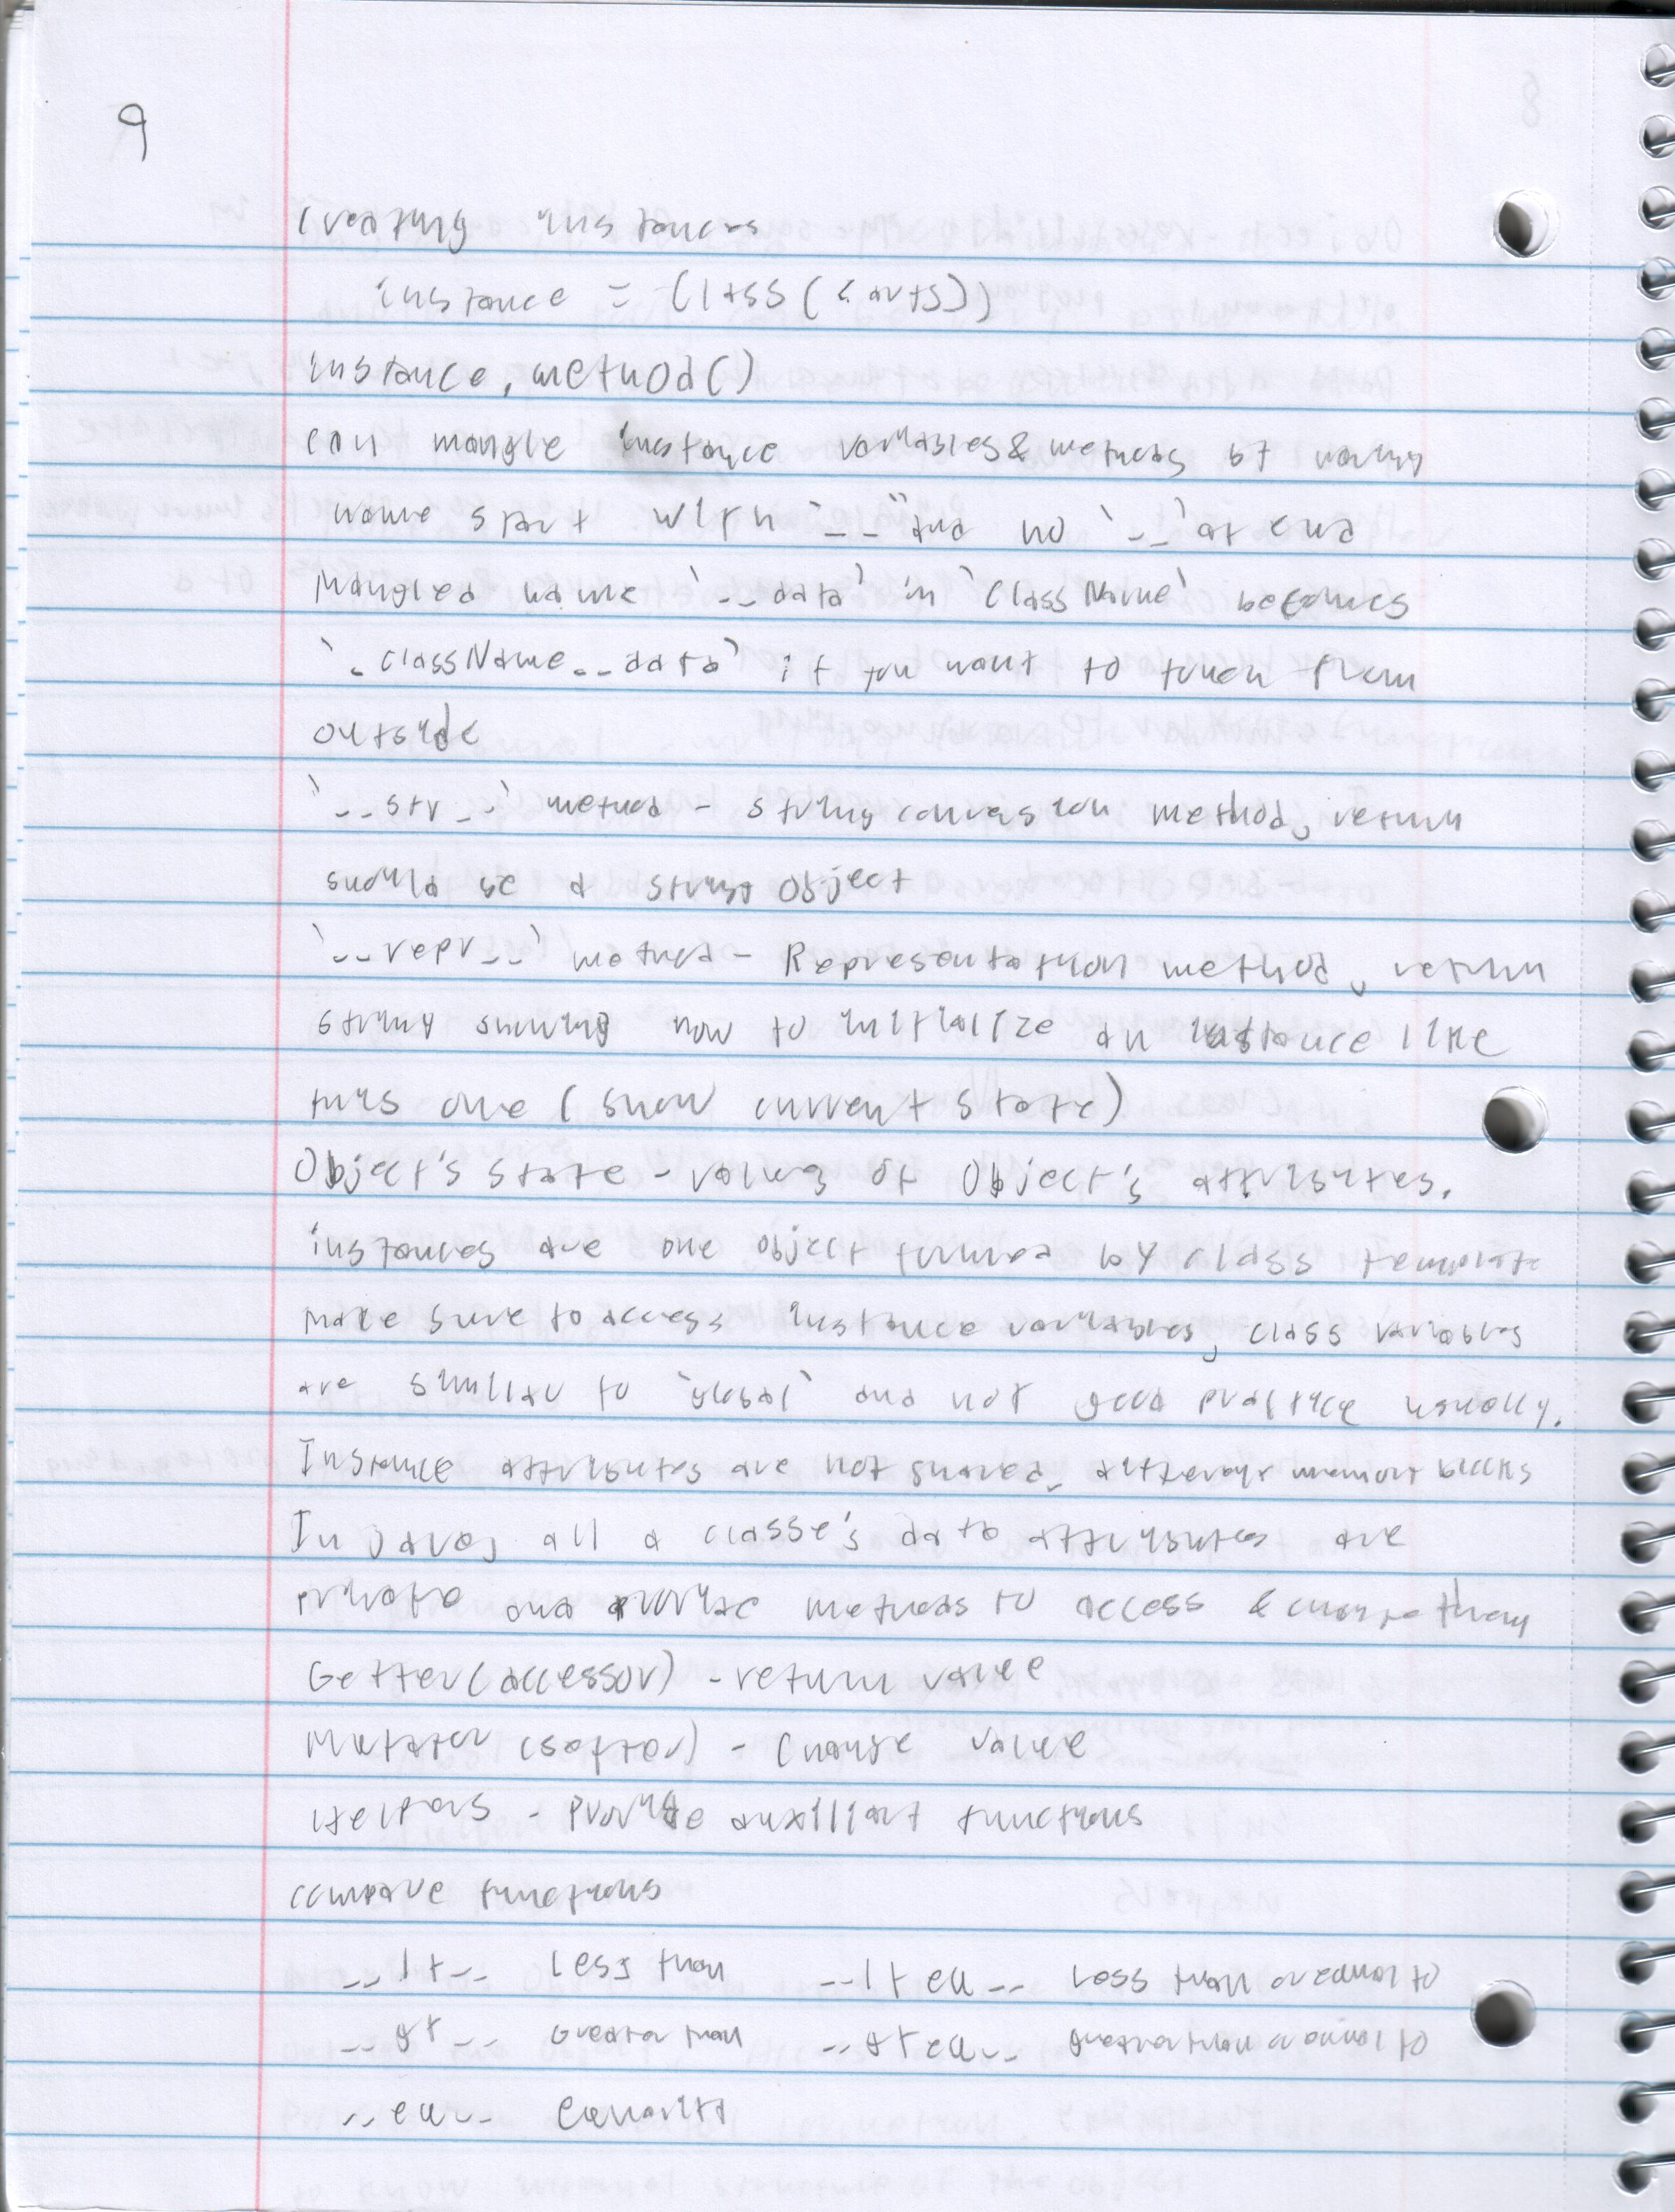 9
Creating instances
instance = Class(<args>)
instance.method()
can mangle instance variables & methods by having
name start with `__` and no `__` at end
Mangled name `__data` in `ClassName` becomes
`_ClassName__data` if you want to touch them
outside
`__str__` method - string conversion method, return
should be a string object
`__repr__` method - Representation method, return
string showing how to initialize an instance like
this one (show current state)
Object's state - values of Object's attributes.
instances are one object formed by class template
Make sure to access instance variables, class variables
are similar to `global` and not good practice usually.
Instance attributes are not shared, different memory blocks
In Java, all a classe's data attributes are
private and provide methods to access & change them
Getter (accessor) - return value
Mutator (setter) - Change value
Helpers - Provide auxilliary functions
compare functions
__lt__ Less than __lteq__ Less than or equal to
__gt__ Greater than __gteq__ greater than or equal to
__eq__ Equality